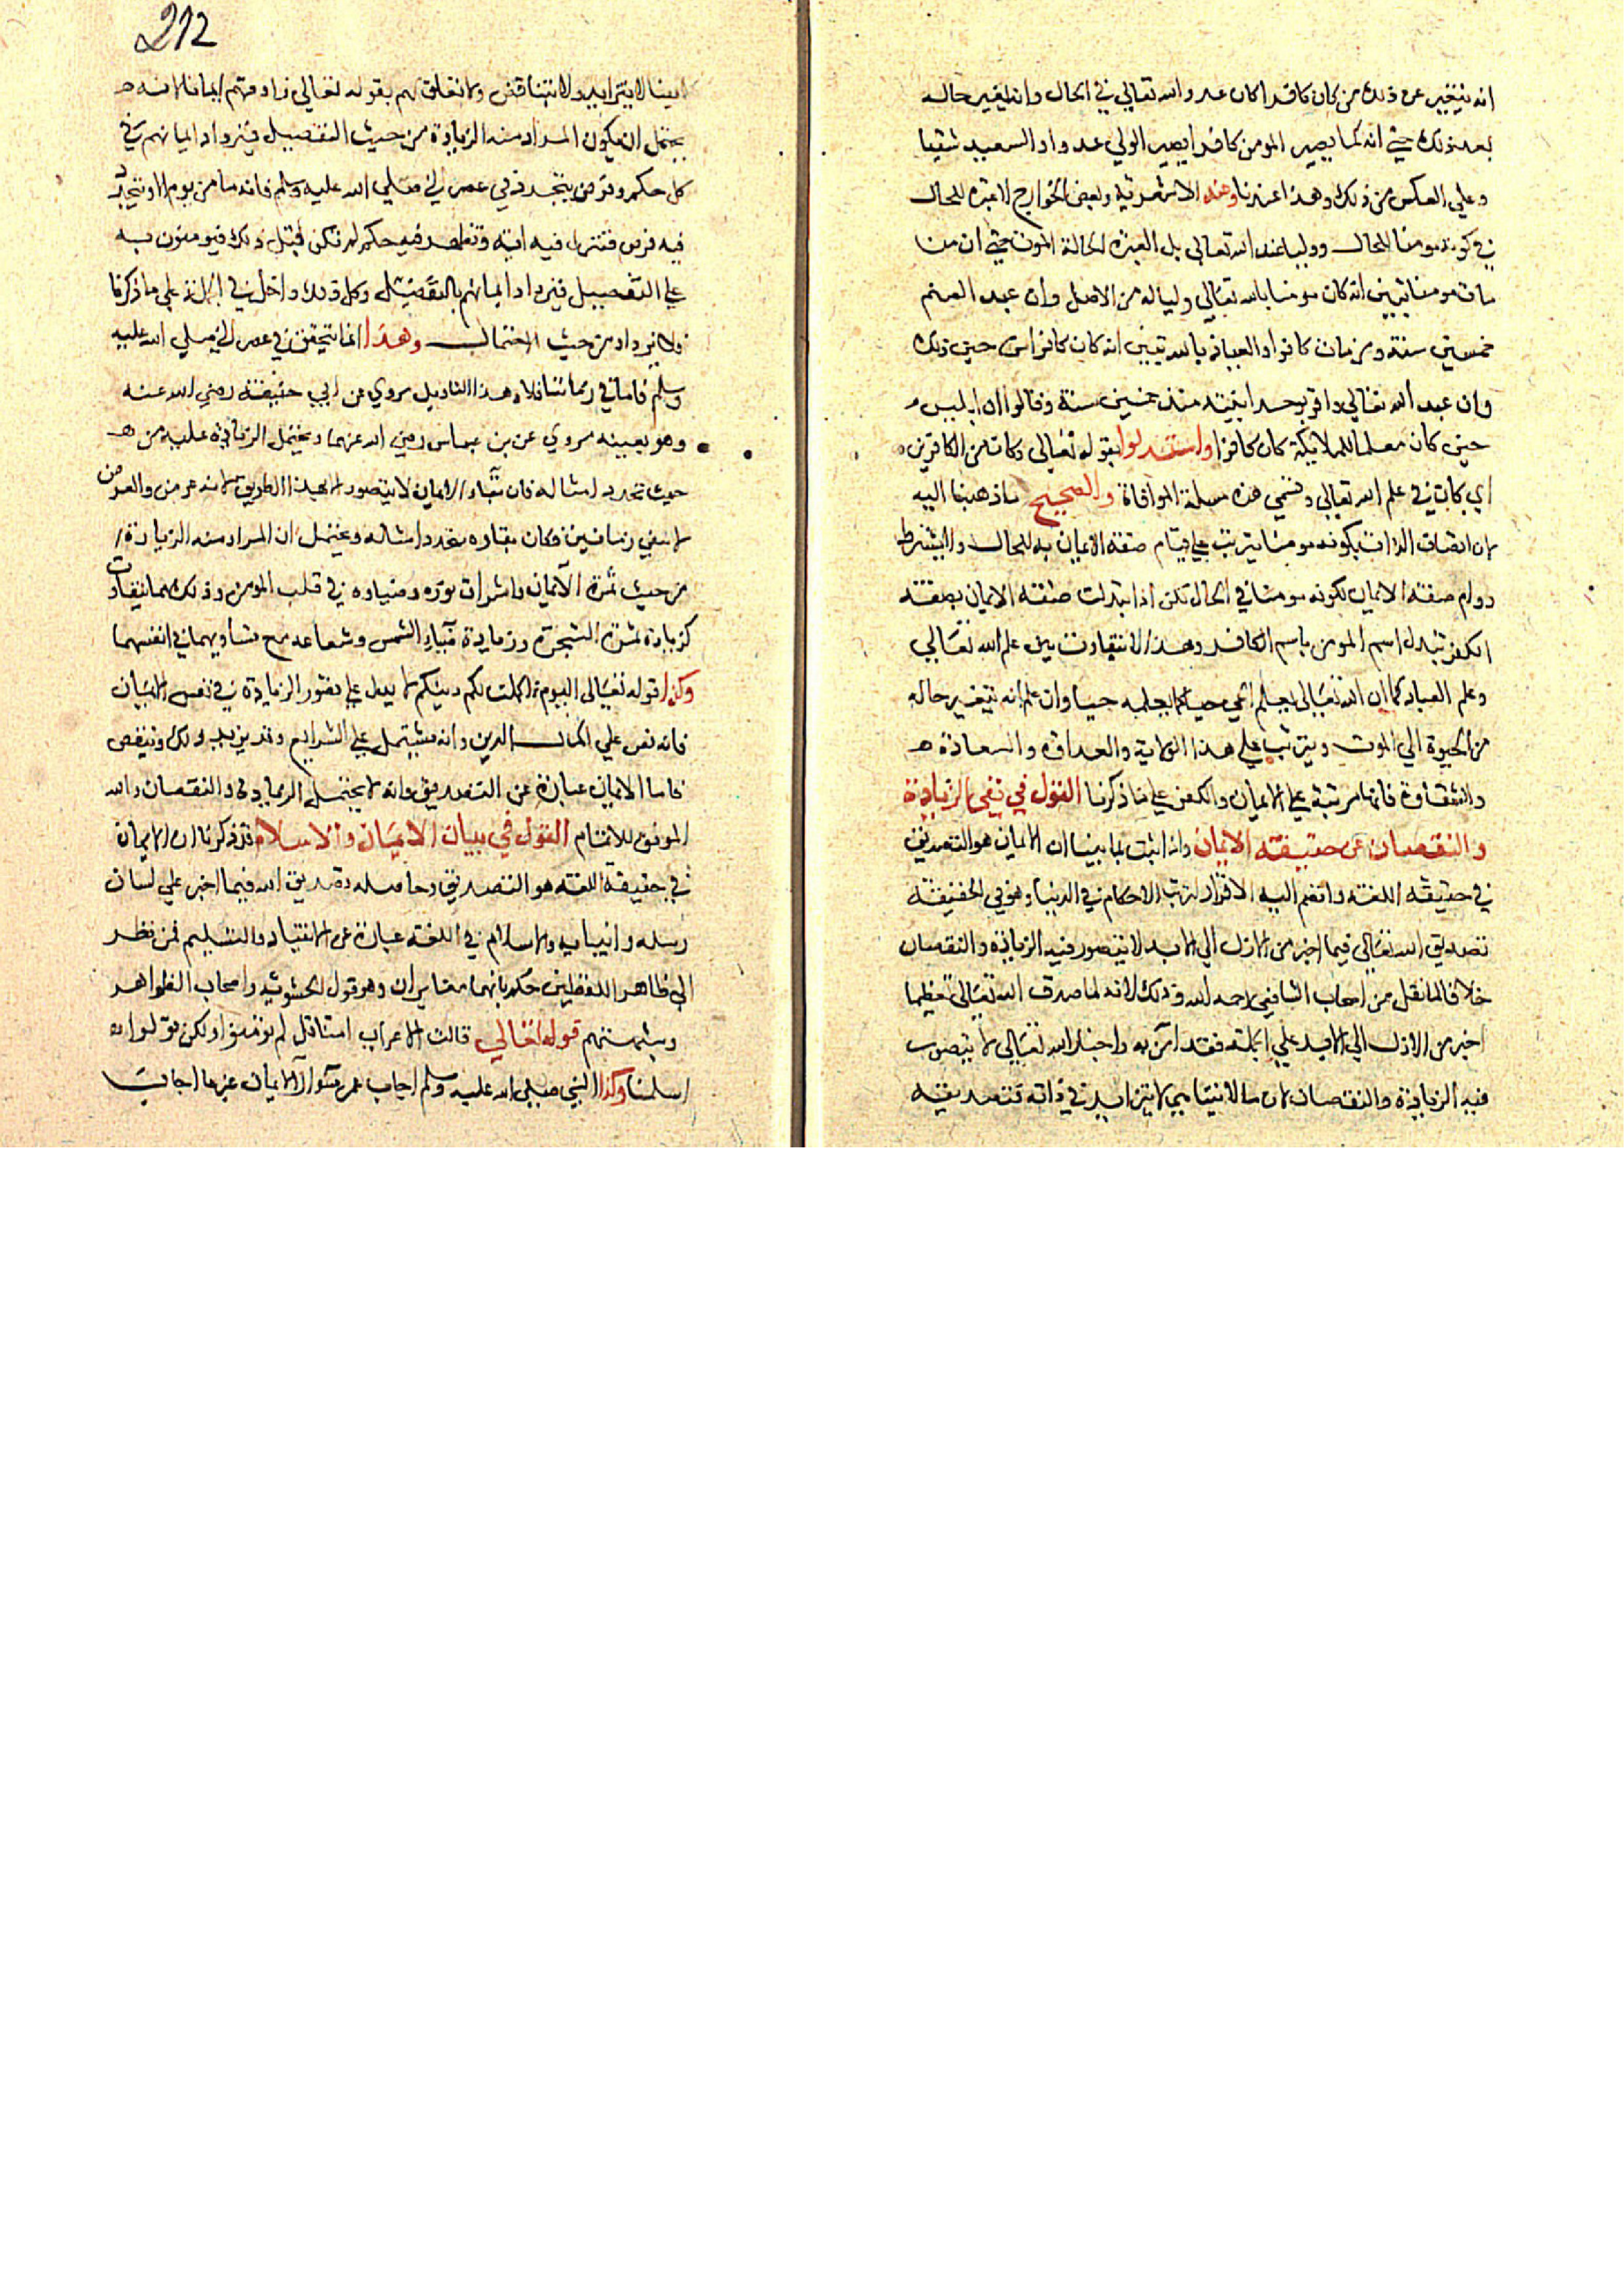 انه يتغير عن ذلك من كان كافرا كان عدو الله تعالي في الحال وانه يتغير حاله
بعد ذلك حتي انه كما يصير المومن كافرا يصير الولي عدوا والسعيد شقيا
وعلي العكس من ذلك وهذا عندنا وعند الاشعرية وبعض الخوارج لا عبرة للحال
في كونه مومنا للحال ووليا عند الله تعالي بل العبرة لحالة الموت حتي ان من
مات مومنا تبين انه كان مومنا بالله تعالي ووليا له من الاصل وان عبد الصنم
خمسين سنة ومن مات كافرا والعياذ بالله تبين انه كان كافرا من حين ذلك
وان عبد الله تعالي واقر بوحدانيته منذ خمسين سنة وقالوا ان ابليس
حين كان معلما للملايكة كان كافرا واستدلوا بقوله تعالي وكان من الكافرين
اي كان في علم الله تعالي وتسمي هذه مسلة الموافاة والصحيح ما ذهبنا اليه
لان اتصاف الذات بكونه مومنا يترتب علي قيام صفة الايمان به للحال ولا يشترط
دوام صفة الايمان لكونه مومنا في الحال لكن اذا تبدلت صفة الايمان بصفة
الكفر تبدل اسم المومن باسم الكافر وهذا لا يتفاوت بين علم الله تعالي
وعلم العباد كما ان الله تعالي يعلم الحي حيا كما يعلمه حيا وان علم انه يتغير حاله
من الحيوة الي الموت ويترتب علي هذا الولاية والعداوة والسعادة
والشقاوة فانها مرتبة علي الايمان والكفر علي ما ذكرنا القول في نفي الزيادة
والنقصان عن حقيقة الايمان وانه اثبت لما بينا ان الايمان هو التصديق
في حقيقة اللغة وانضم اليه الاقرار لترتب الاحكام في الدنيا وهو في الحقيقة
تصديق الله تعالي فيما اخبر من الازل الي الابد لا يتصور فيه الزيادة والنقصان
خلافا لما نقل من اصحاب الشافعي رحمه الله وذلك لانه لما صدق الله تعالي فيما
اخبر من الازل الي الابد علي الجملة فقد امن به واخبار الله تعالي لا يتصور
فيه الزيادة والنقصان لان ما لا يتناهي لا يتزايد في ذاته فتصديقه
212
ايضا لا يتزايد ولا يتناقص ولا تعلق لهم بقوله تعالي زادتهم ايمانا لانه
يحتمل ان يكون المراد منه الزيادة من حيث التفصيل فيزداد ايمانهم في
كل حكم وفرض يتجدد في عصر النبي صلي الله عليه وسلم فانه ما من يوم الا ويتجدد
فيه فرض فتنزل فيه اية وتظهر فيه حكم لم تكن قبل ذلك فيومنون به
علي التفصيل فيزداد ايمانهم بالتفصيل وكل ذلك داخل في الجملة علي ما ذكرنا
ولا يزداد من حيث الاجمال وهذا انما يتحقق في عصر النبي صلي الله عليه
وسلم فاما في زماننا فلا وهذا التاويل مروي عن ابي حنيفة رضي الله عنه
وهو بعينه مروي عن بن عباس رضي الله عنهما ويحتمل الزيادة عليه من
حيث تجدد امثاله فان بقاء الايمان لا يتصور الا بهذا الطريق لانه عرض والعرض
لا يبقي زمانين فكان بقاوه بتجدد امثاله ويحتمل ان المراد منه الزيادة
من حيث ثمرة الايمان واشراق نوره وضياوه في قلب المومن وذلك مما يتفاوت
كزيادة ثمرة الشجرة وزيادة ضياء الشمس وشعاعه مع تساويهما في انفسهما
وكذا قوله تعالي اليوم اكملت لكم دينكم لا يدل علي تصور الزيادة في نفس الايمان
فانه نص علي اكمال الدين وانه يشتمل علي الشرايع وقد يزيد ذلك وينقص
فاما الايمان عبارة عن التصديق وانه لا يحتمل الزيادة والنقصان والله
الموفق للاتمام القول في بيان الايمان والاسلام قد ذكرنا ان الايمان
في حقيقة اللغة هو التصديق وحاصله تصديق الله فيما اخبر علي لسان
رسله وانبيايه والاسلام في اللغة عبارة عن الانقياد والتسليم فمن نظر
الي ظاهر اللفظين حكم بانهما متغايران وهو قول الحشوية واصحاب الظواهر
وشبهتهم قوله تعالي قالت الاعراب امنا قل لم تومنوا ولكن قولوا
اسلمنا وكذا النبي صلي الله عليه وسلم اجاب عن سوال الايمان غير ما اجاب